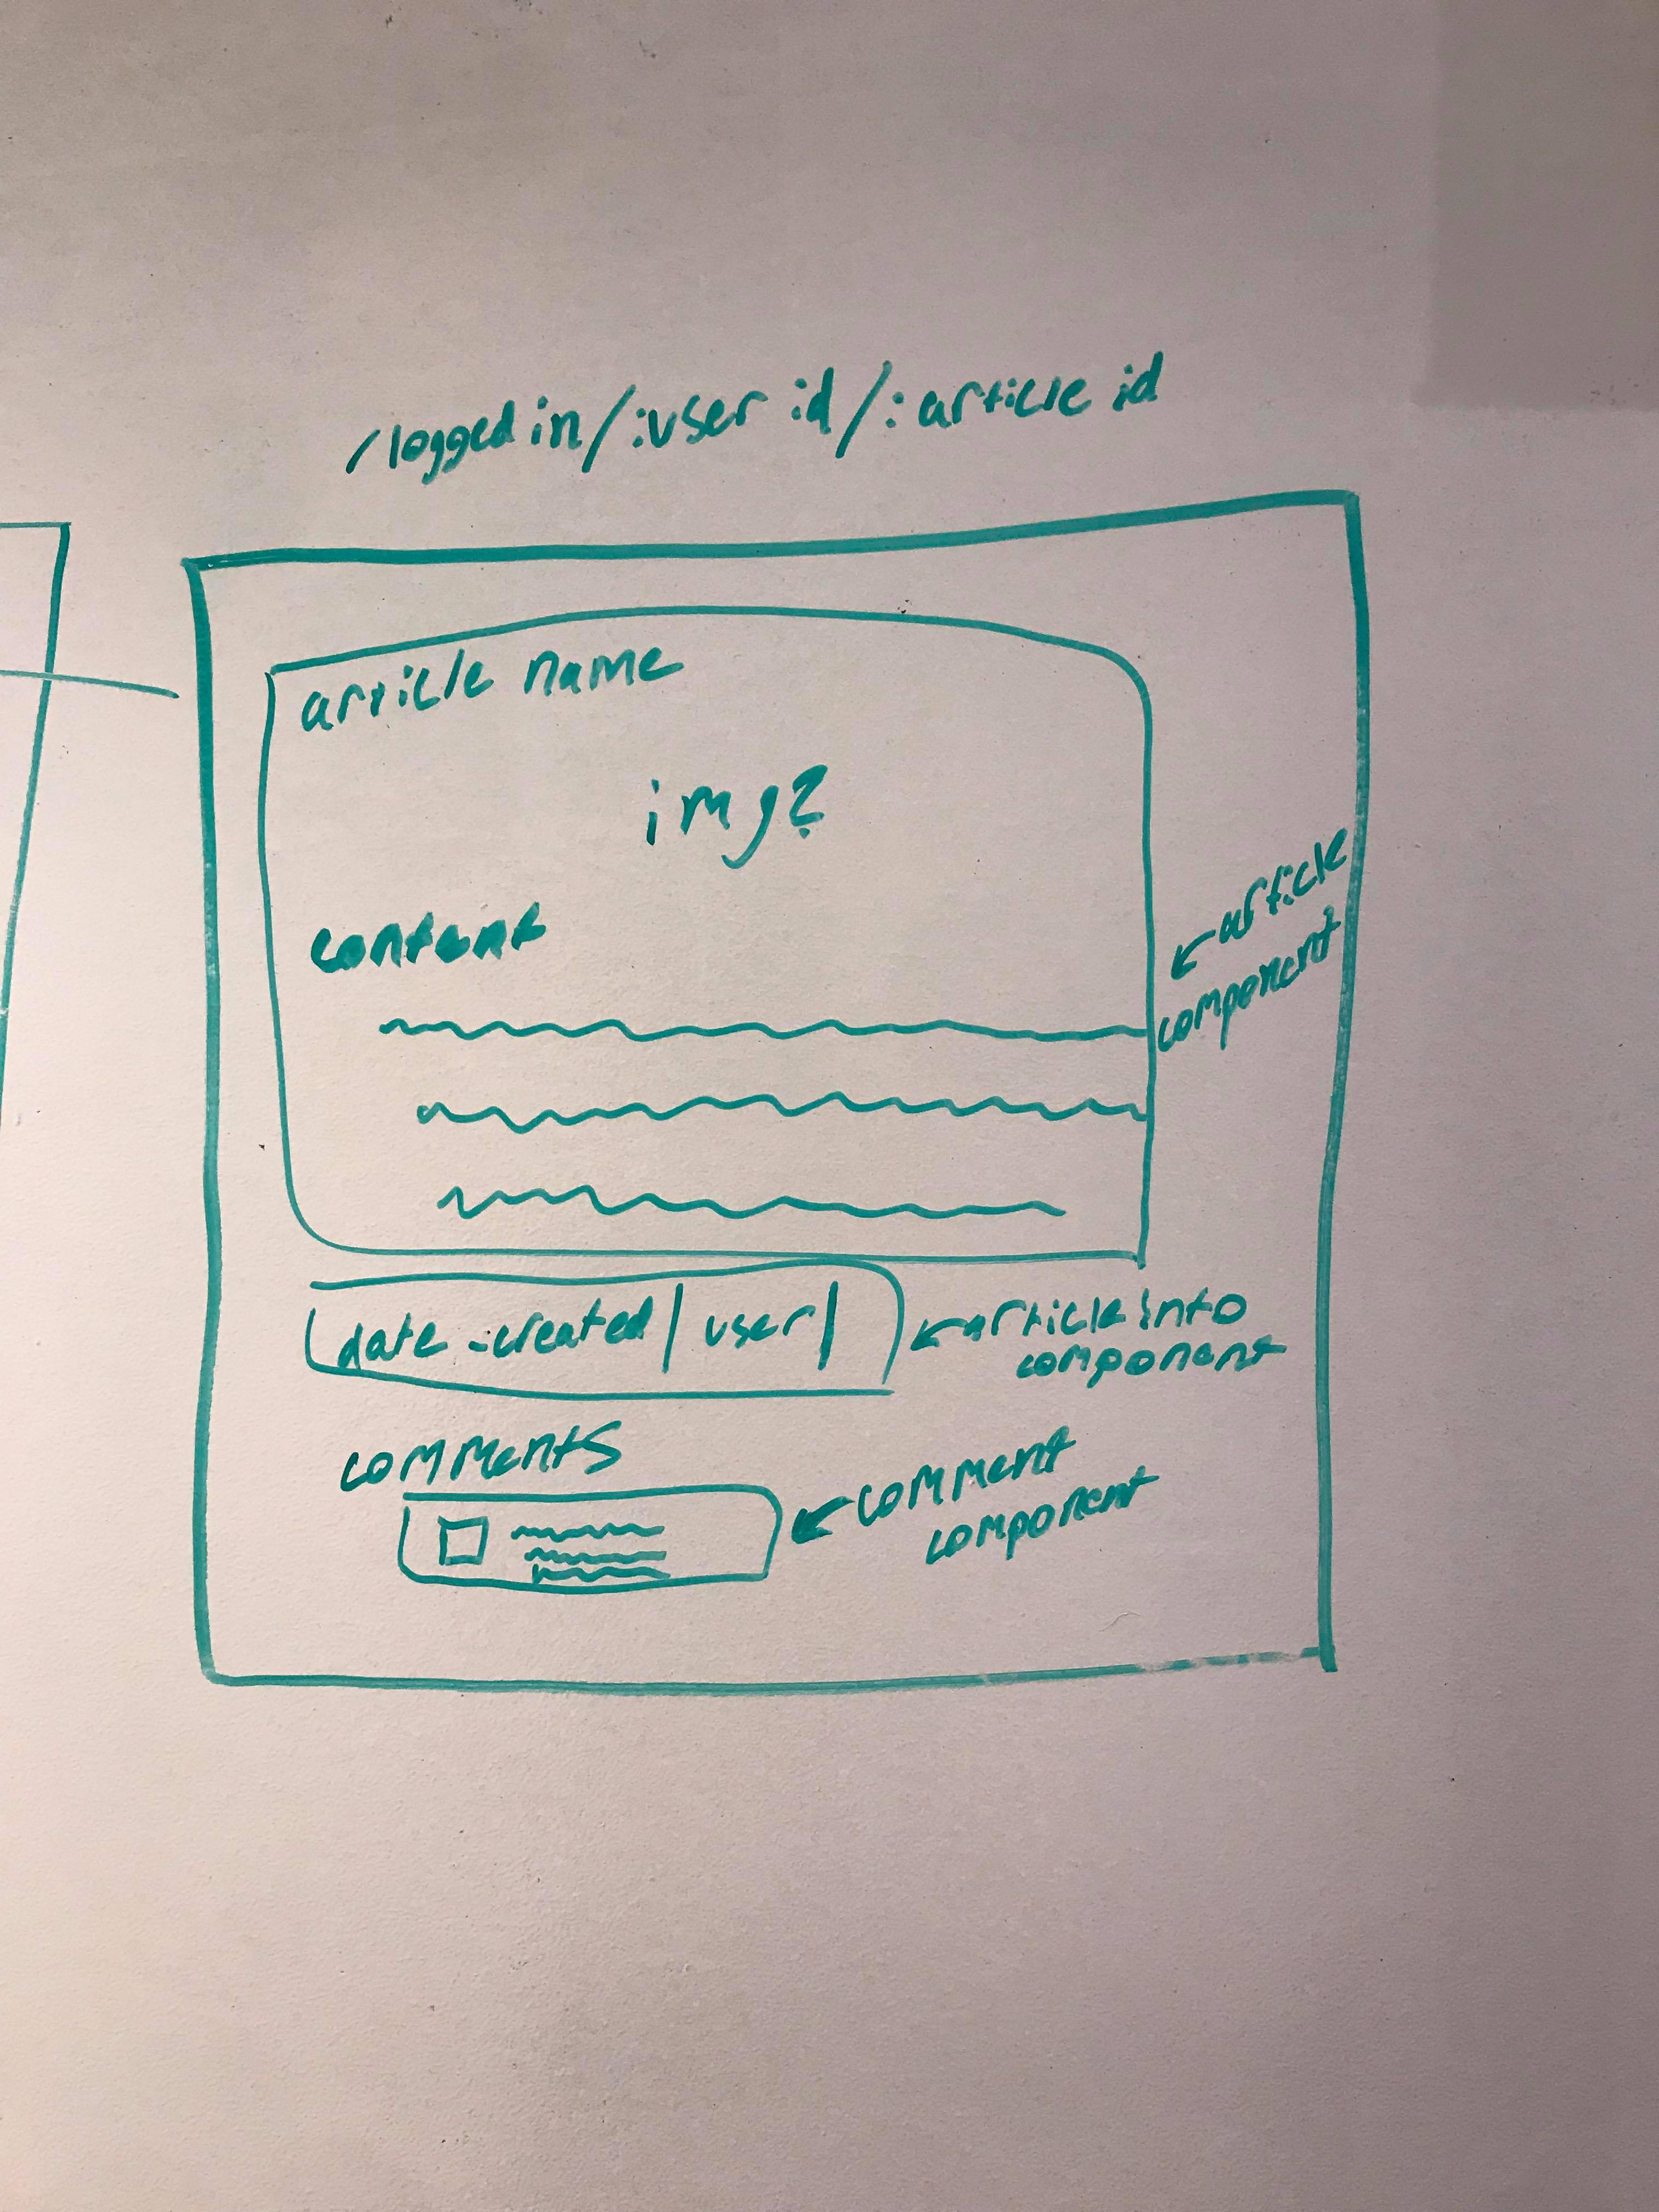 /logged in/:user id/:article id
article name
img?
content
← article
component
date_created | user |
← article info
component
comments
← comment
component